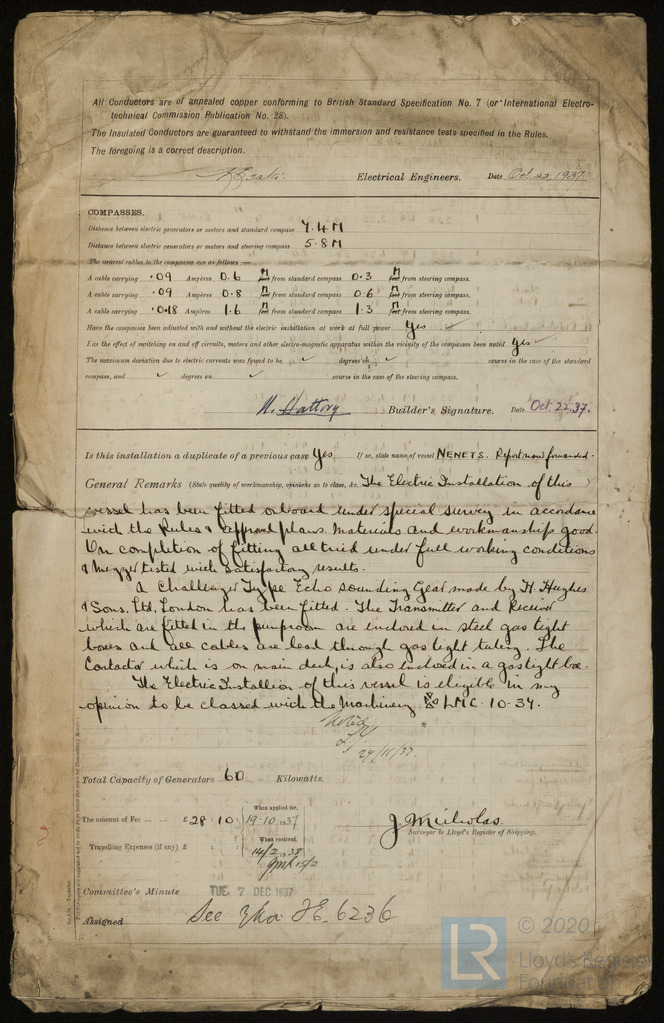 All Conductors are of annealed copper conforming to British Standard Specification No. 7 (or International Electro-
technical Commission Publication No. 28).
The Insulated Conductors are guaranteed to withstand the immersion and resistance tests specified in the Rules.
The foregoing is a correct description.
Electrical Engineers. Date Oct. 22, 1937.
COMPASSES.
Distance between electric generators or motors and standard compass 7.4 M
Distance between electric generators or motors and steering compass 5.8 M
The nearest cables to the compasses are as follows:—
A cable carrying .09 Ampères 0.6 M feet from standard compass 0.3 M feet from steering compass.
A cable carrying .09 Ampères 0.8 M feet from standard compass 0.6 M feet from steering compass.
A cable carrying 0.18 Ampères 1.6 M feet from standard compass 1.3 M feet from steering compass.
Have the compasses been adjusted with and without the electric installation at work at full power Yes
Has the effect of switching on and off circuits, motors and other electro-magnetic apparatus within the vicinity of the compasses been noted Yes
The maximum deviation due to electric currents was found to be ✓ degrees on ✓ course in the case of the standard
compass, and ✓ degrees on ✓ course in the case of the steering compass.
H. Hattory Builder's Signature. Date Oct. 22. 37.
Is this installation a duplicate of a previous case Yes If so, state name of vessel NENETS. Report now forwarded.
General Remarks (State quality of workmanship, opinions as to class, &c. The Electric Installation of this )
vessel has been fitted onboard under special survey in accordance
with the Rules & approved plans. Materials and workmanship good.
On completion of fitting all tried under full working conditions
& megger tested with satisfactory results.
A Challenger Type Echo sounding Gear made by H. Hughes
& Sons. Ltd. London has been fitted. The Transmitter and Receiver
which are fitted in the pumproom are enclosed in steel gas tight
boxes and all cables are lead through gas tight tubing. The
Contactor which is on main deck, is also enclosed in a gastight box.
The Electric Installion of this vessel is eligible in my
opinion to be classed with the Machinery LMC. 10-37.
Noted
29/11/37.
Total Capacity of Generators 60 Kilowatts.
The amount of Fee ... ... £ 28 : 10 : When applied for, 19.10.1937
Travelling Expenses (if any) £ : : When received, 14/2 1938
J Nicholas
Surveyor to Lloyd's Register of Shipping.
Committee's Minute TUE. 7 DEC 1937
Assigned See Yka F.E. 6236
© 2020
LR
Lloyd's Register
Foundation